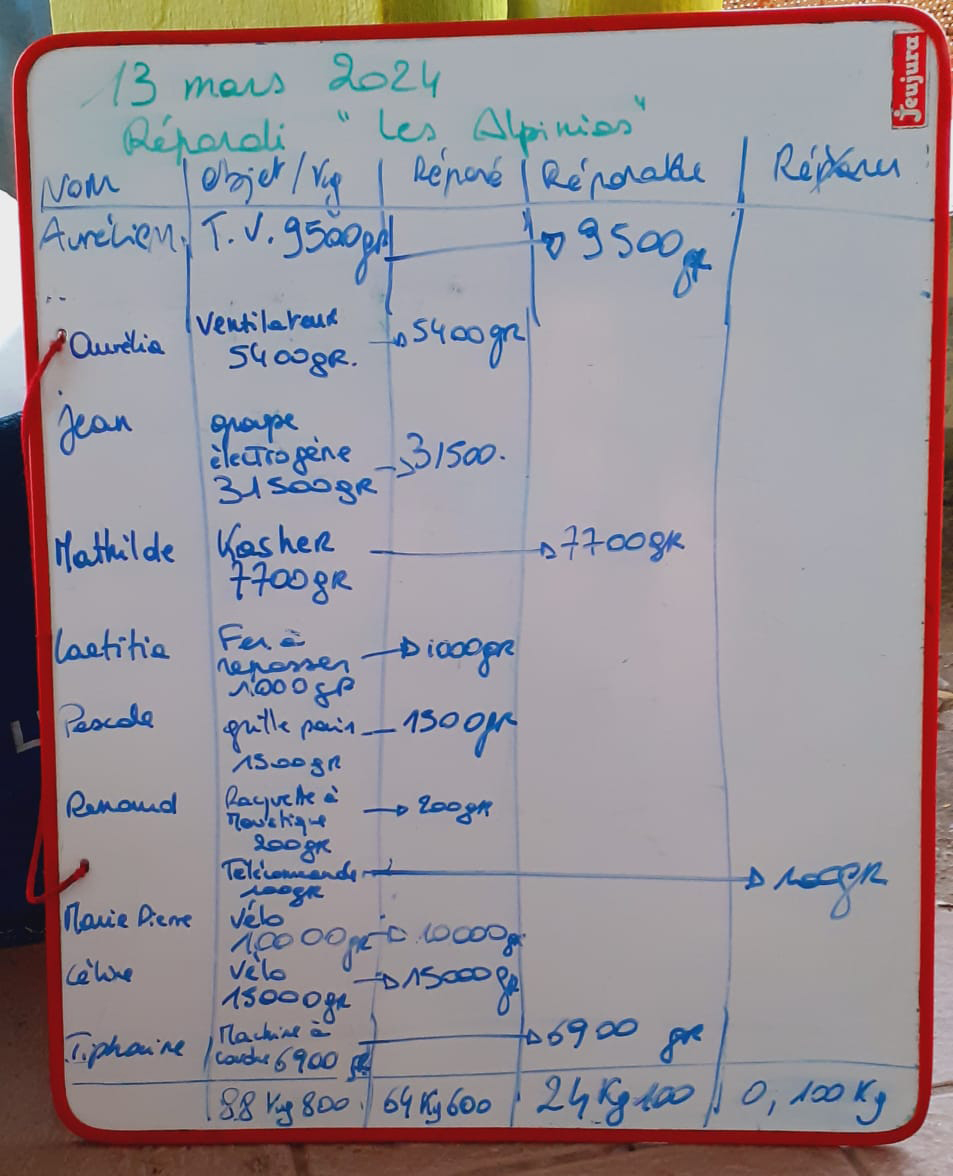 jeujura
13 mars 2024
Réparali "Les Alpinias"
Nom Objet/Kg Réparé Réparable
Aurélien T.V. 9500gr 9500gr
Aurélia Ventilateur 5400gr
5400gr.
Jean groupe
électrogène 31500.
31500gr
Mathilde Kasher 7700gr
7700gr
Laetitia Fer à
repasser 1000gr
1000gr
Pascale grille pain 1500gr
1500gr
Renaud Raquette à
Moustique 200gr
200gr
Télécommande 100gr
100gr
Marie Pierre Vélo
10000gr 10000gr
Céline Vélo 15000gr
15000gr
Tiphaine Machine à
coudre 6900 gr 6900 gr
88 Kg 800. 64 Kg 600 24 Kg 100 0,100 Kg